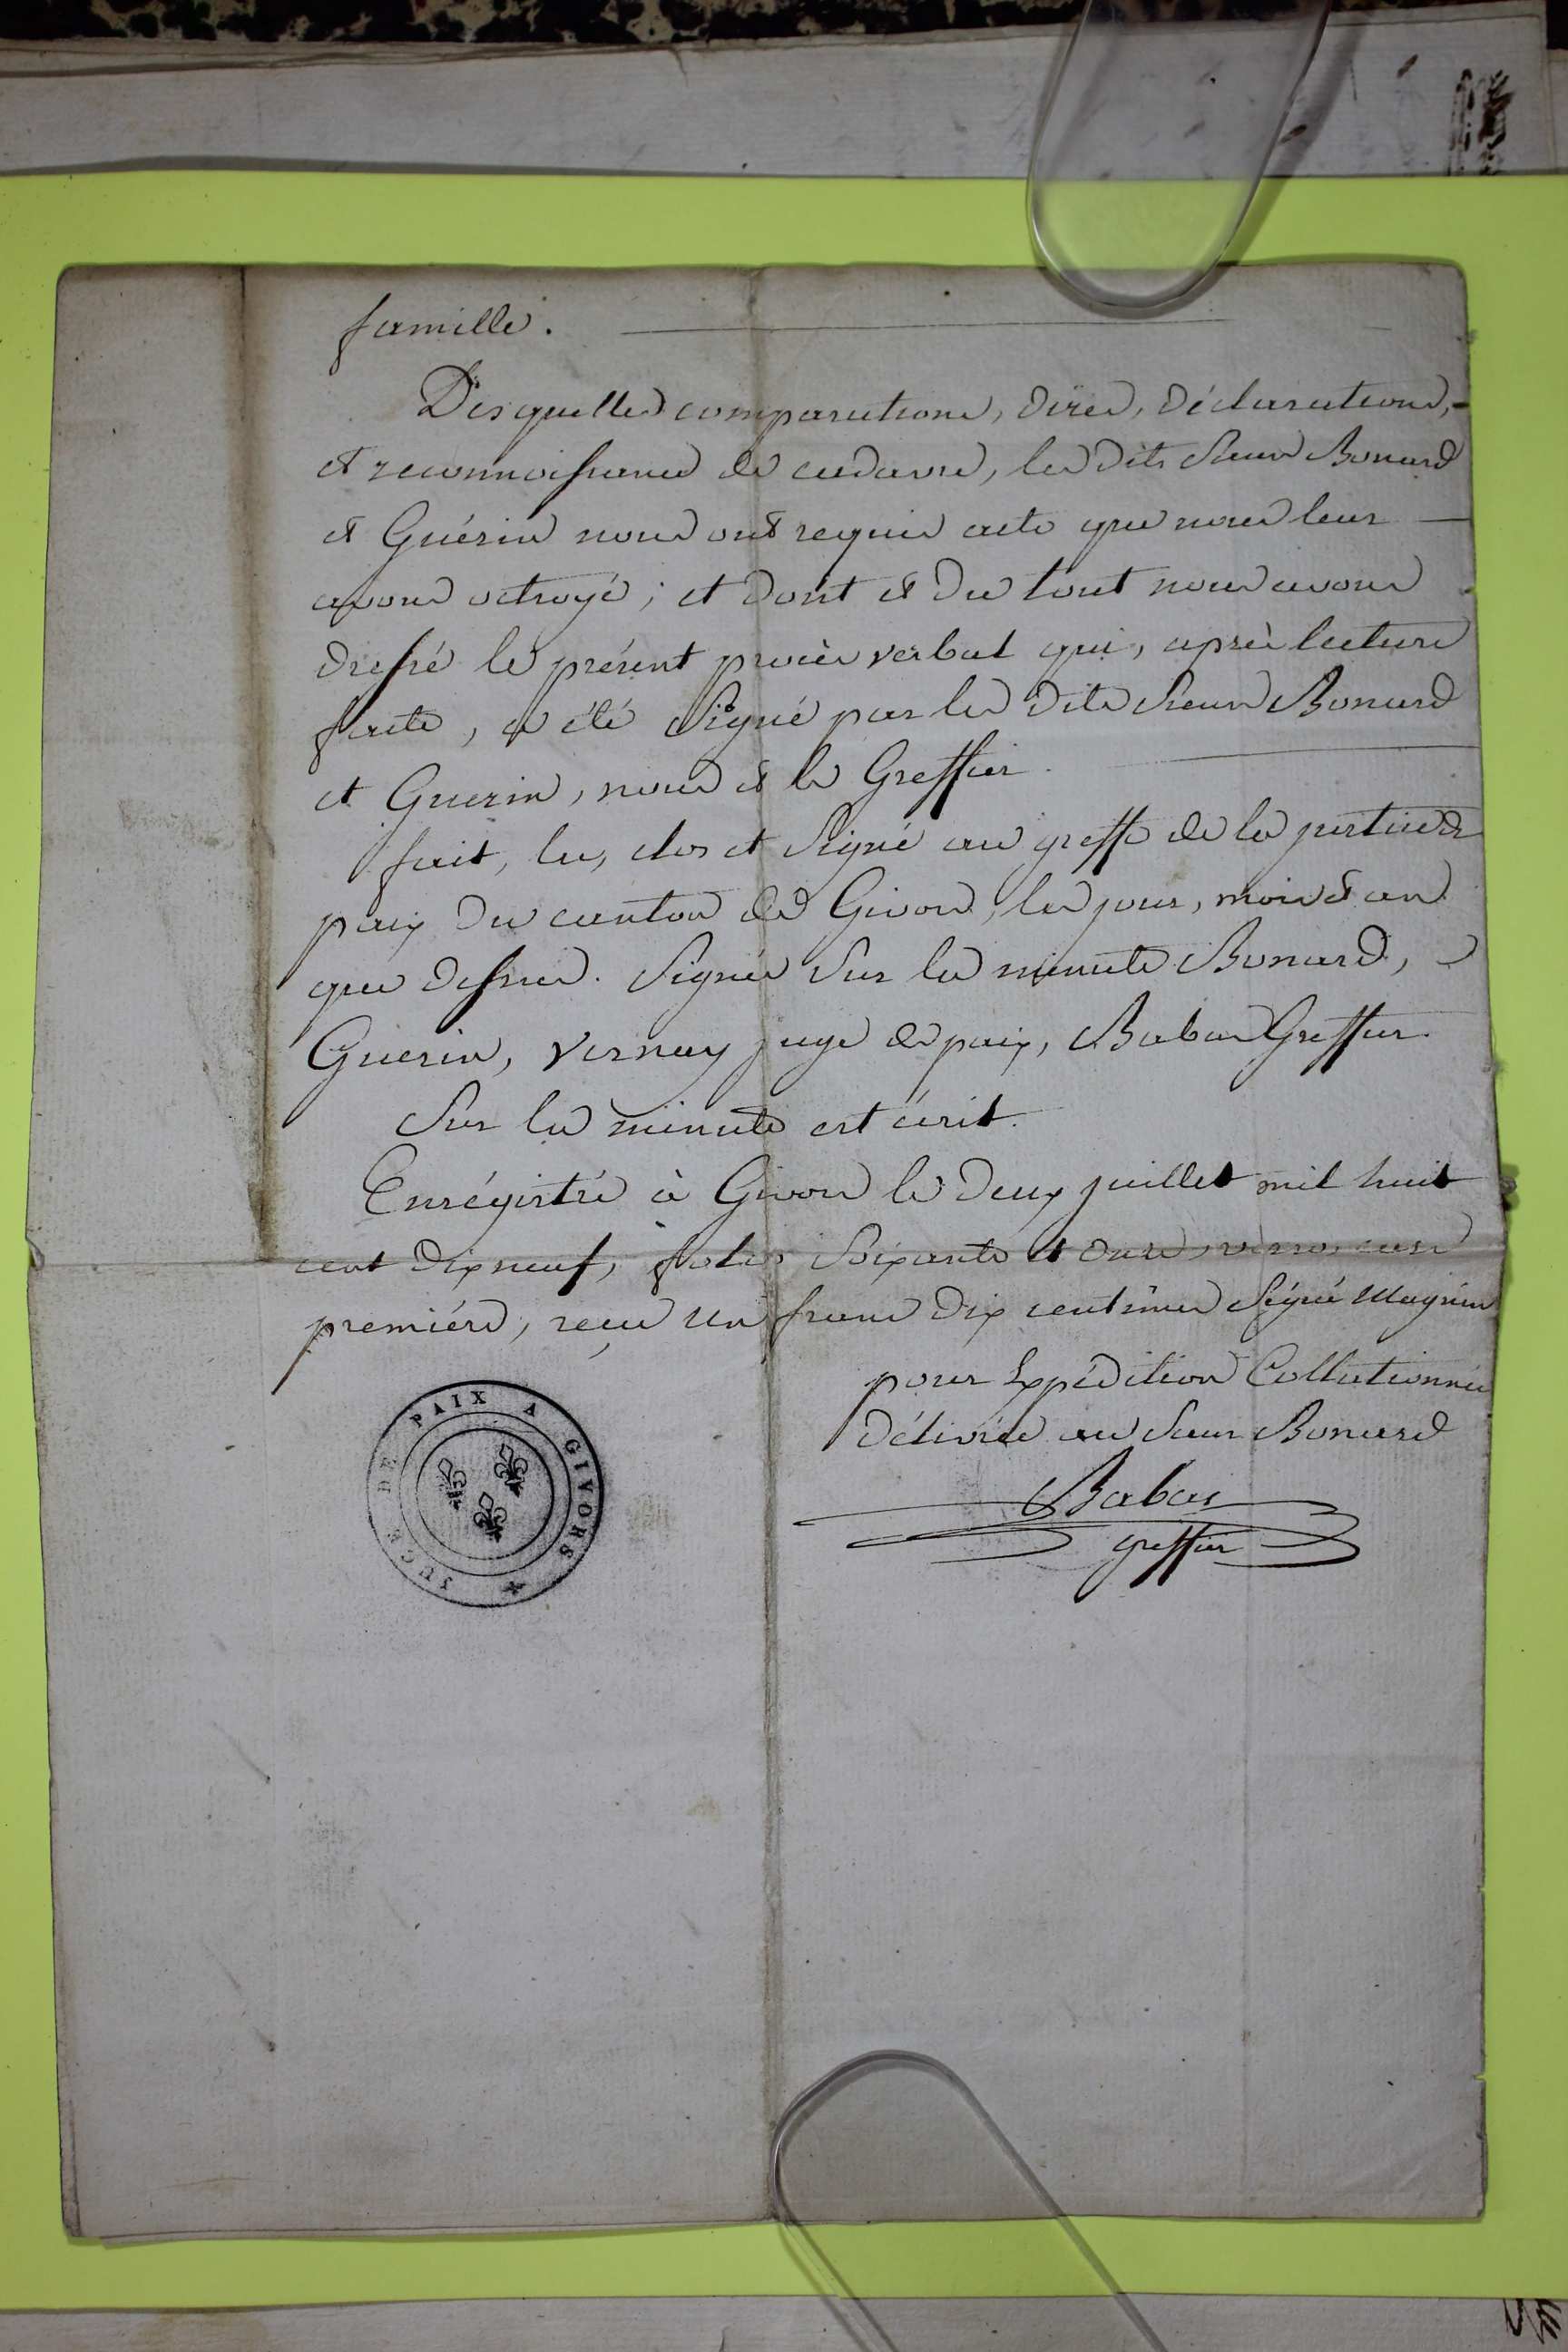 famille.
Desquelles comparutions, dires, déclarations,
et reconnoissance de cadavre, les dits Sieurs Bonard
et Guérin nous ont requis acte que nous leur
avons octroyé ; et dont et du tout nous avons
dressé le présent procès verbal qui, après lecture
faite, a été Signé par les dits Sieurs Bonard
et Guerin, nous et le Greffier.
fait, lu, clos et Signé au greffe de la justice de
paix du canton de Givors, les jour, mois et an
que dessus. Signés Sur la minute Bonard,
Guerin, Vernay juge de paix, Babas Greffier.
Sur la minute est écrit.
Enrégistré à Givors le deux juillet mil huit
cent dix neuf, folio Soixante et onze verso, case
premiére, reçu un franc dix centimes Signé Magnin
pour Expédition Collationnée
délivrée au Sieur Bonard
Babas
greffier
JUGE DE PAIX A GIVORS